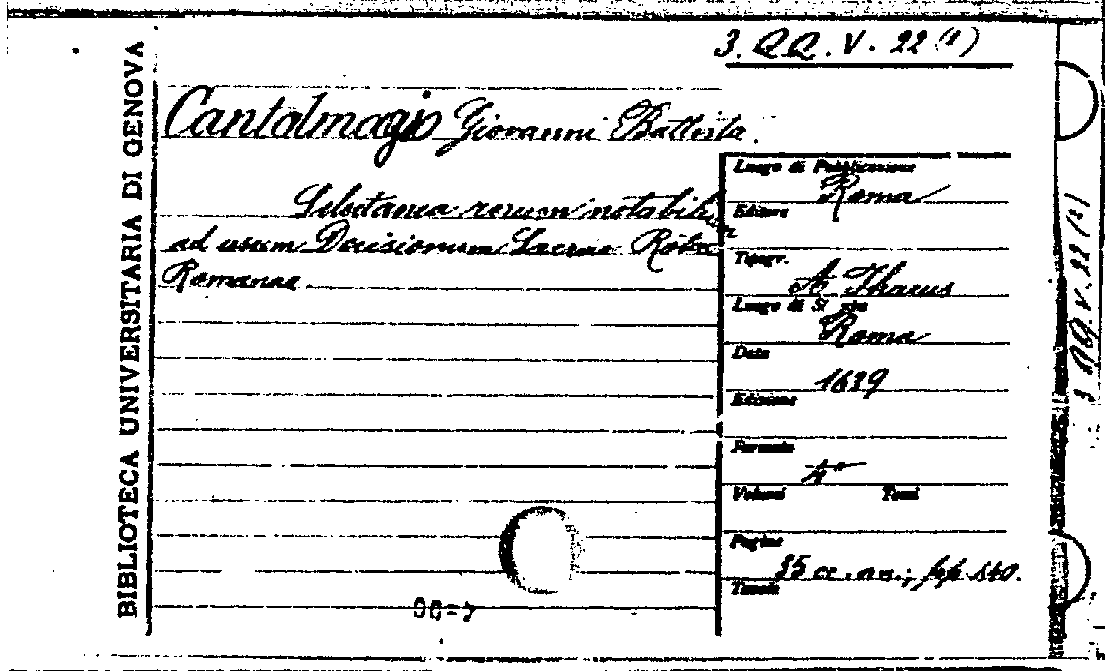 3. QQ. V. 22 (1)
BIBLIOTECA UNIVERSITARIA DI GENOVA
Cantalmagio Giovanni Battista.
Selectanea rerum notabilium
ad usum Decisionum Sacrae Rotae
Romanae
Luogo di Pubblicazione
Roma
Editore
Tipogr.
Luogo di St
Roma
Data
1639
Edizione
Formato
4°
Volumi Tomi
Pagine
35 cc. nn.; pp. 540.
Tavole
3 QQ. V. 22 (1)